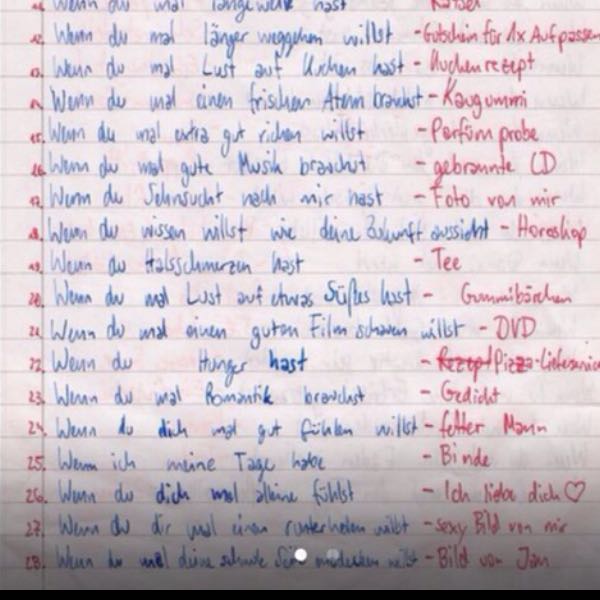 Wenn du mal langeweile hast - Rätsel
12. Wenn du mal länger weggehen willst - Gutschein für 1x Aufpassen
13. Wenn du mal Lust auf Kuchen hast - Kuchenrezept
14. Wenn du mal einen frischen Atem brauchst - Kaugummi
15. Wenn du mal extra gut riechen willst - Parfümprobe
16. Wenn du mal gute Musik brauchst - gebrannte CD
17. Wenn du Sehnsucht nach mir hast - Foto von mir
18. Wenn du wissen willst wie deine Zukunft aussieht - Horoskop
19. Wenn du Halsschmerzen hast - Tee
20. Wenn du mal Lust auf etwas Süßes hast - Gummibärchen
21. Wenn du mal einen guten Film schauen willst - DVD
22. Wenn du Hunger hast - Pizza-Lieferservice
23. Wenn du mal Romantik brauchst - Gedicht
24. Wenn du dich mal gut fühlen willst - fetter Mann
25. Wenn ich meine Tage habe - Binde
26. Wenn du dich mal alleine fühlst - Ich liebe dich ♡
27. Wenn du dir mal einen runterholen willst - sexy Bild von mir
28. Wenn du mal deine schwule Seite entdecken willst - Bild von Jan